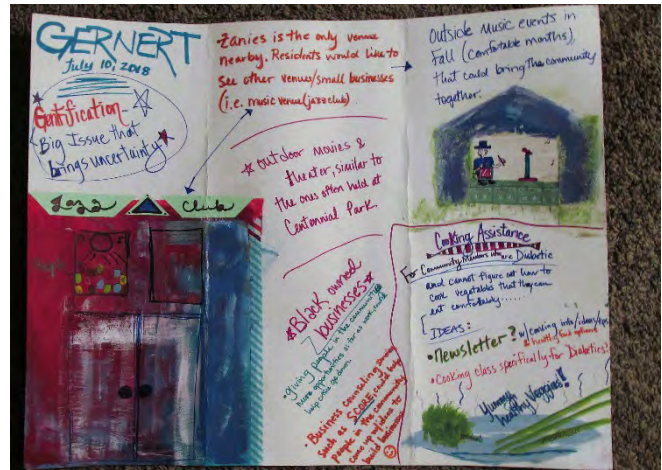 GERNERT
July 10, 2018
Gentification-
Big Issue that
brings uncertainty
Jazz Club
Zanies is the only venue
nearby. Residents would like to
see other venues/small businesses
(i.e. music venue(jazz club)
☆ outdoor movies &
theater, similar to
the ones often held at
Centennial Park.
☆ Black owned
businesses ☆
giving people in the community
more opportunities as far as work, could
help crime go down.
• Business counseling
such as SCORE, could help
people in the community
come up w/ ideas to
build business
Outside Music events in
Fall (comfortable months)
that could bring the community
together.
Cooking Assistance
For Community Members who are Diabetic
and cannot figure out how to
cook vegetables that they can
eat comfortably......
IDEAS:
• newsletter? w/ cooking info/ideas/
& healthy food options
• Cooking class specifically for Diabetics?
Yummy
healthy Veggies!!